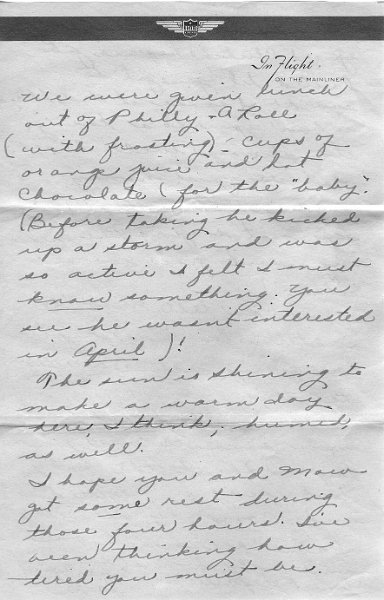 In Flight
ON THE MAINLINER
We were given lunch
out of Philly - A Roll
(with frosting) - cups of
orange juice and hot
chocolate (for the "baby".
(Before taking he kicked
up a storm and was
so active I felt I must
know something. You
see he wasn't interested
in April)!
The sun is shining to
make a warm day
here, I think, humid,
as well.
I hope you and Mow
got some rest during
those four hours. I've
been thinking how
tired you must be.